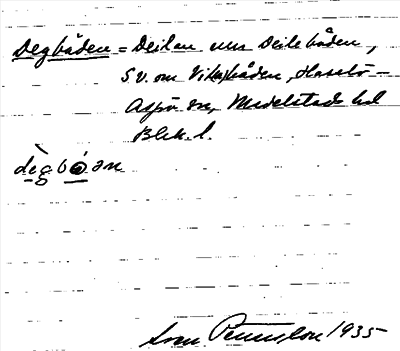 Degbåden = Deilan eller Deilebåden,
S.v. om Vikbåden, Hasslö –
Aspö sn, Medelstads hd
Blek. l.
dègbóən
Sven Benson 1935